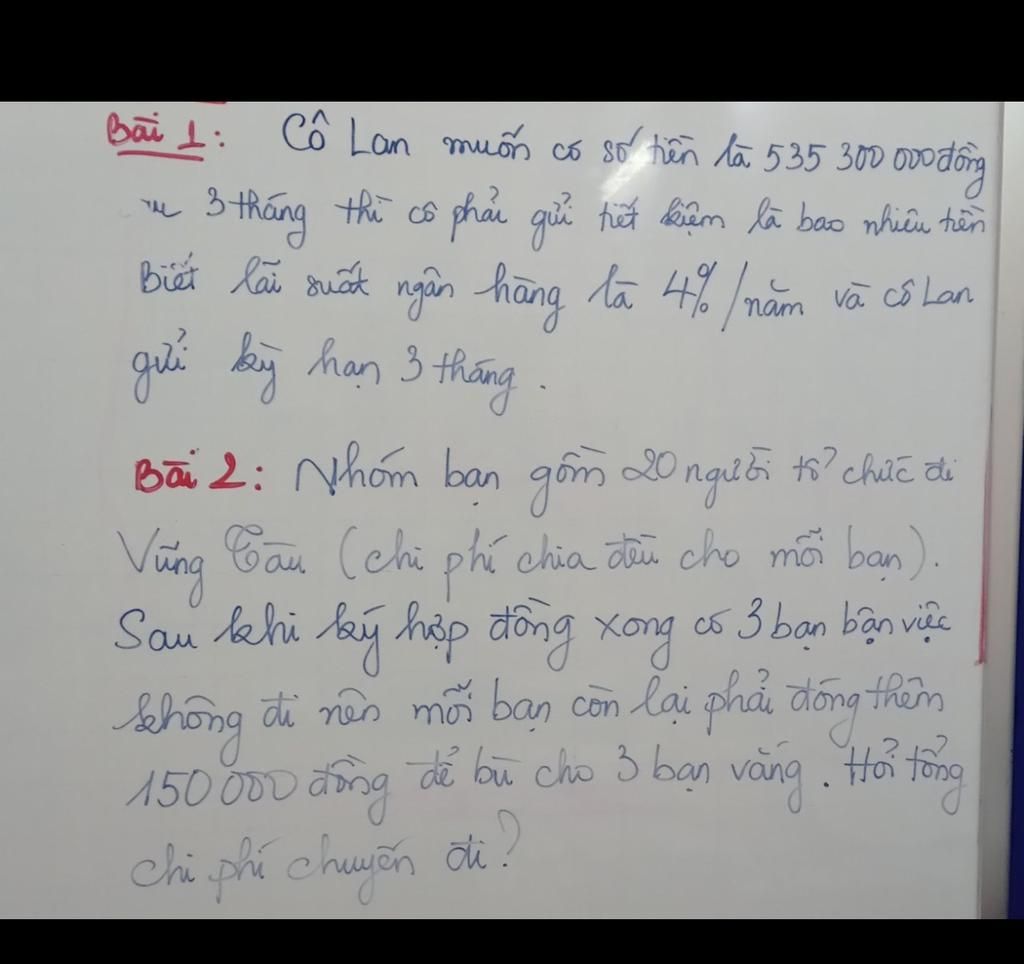 Bài 1: Cô Lan muốn có số tiền là 535 300 000 đồng
3 tháng thì cô phải gửi tiết kiệm là bao nhiêu tiền
Biết lãi suất ngân hàng là 4%/năm và cô Lan
gửi kỳ hạn 3 tháng.
Bài 2: Nhóm bạn gồm 20 người tổ chức đi
Vũng Tàu (chi phí chia đều cho mỗi bạn).
Sau khi ký hợp đồng xong có 3 bạn bận việc
không đi nên mỗi bạn còn lại phải đóng thêm
150 000 đồng để bù cho 3 bạn vắng. Hỏi tổng
chi phí chuyến đi?